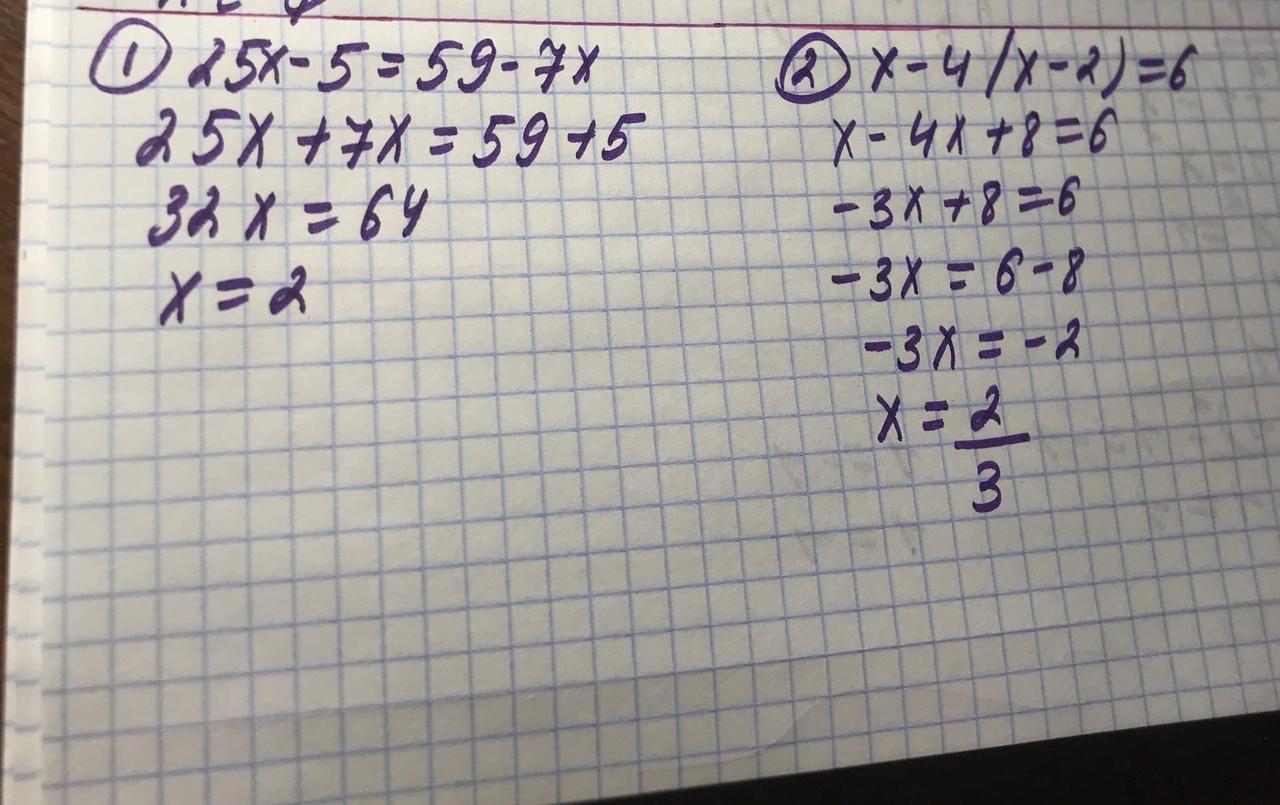 ① 25x-5=59-7x
25x+7x=59+5
32x=64
x=2
② x-4(x-2)=6
x-4x+8=6
-3x+8=6
-3x=6-8
-3x=-2
x=2/3